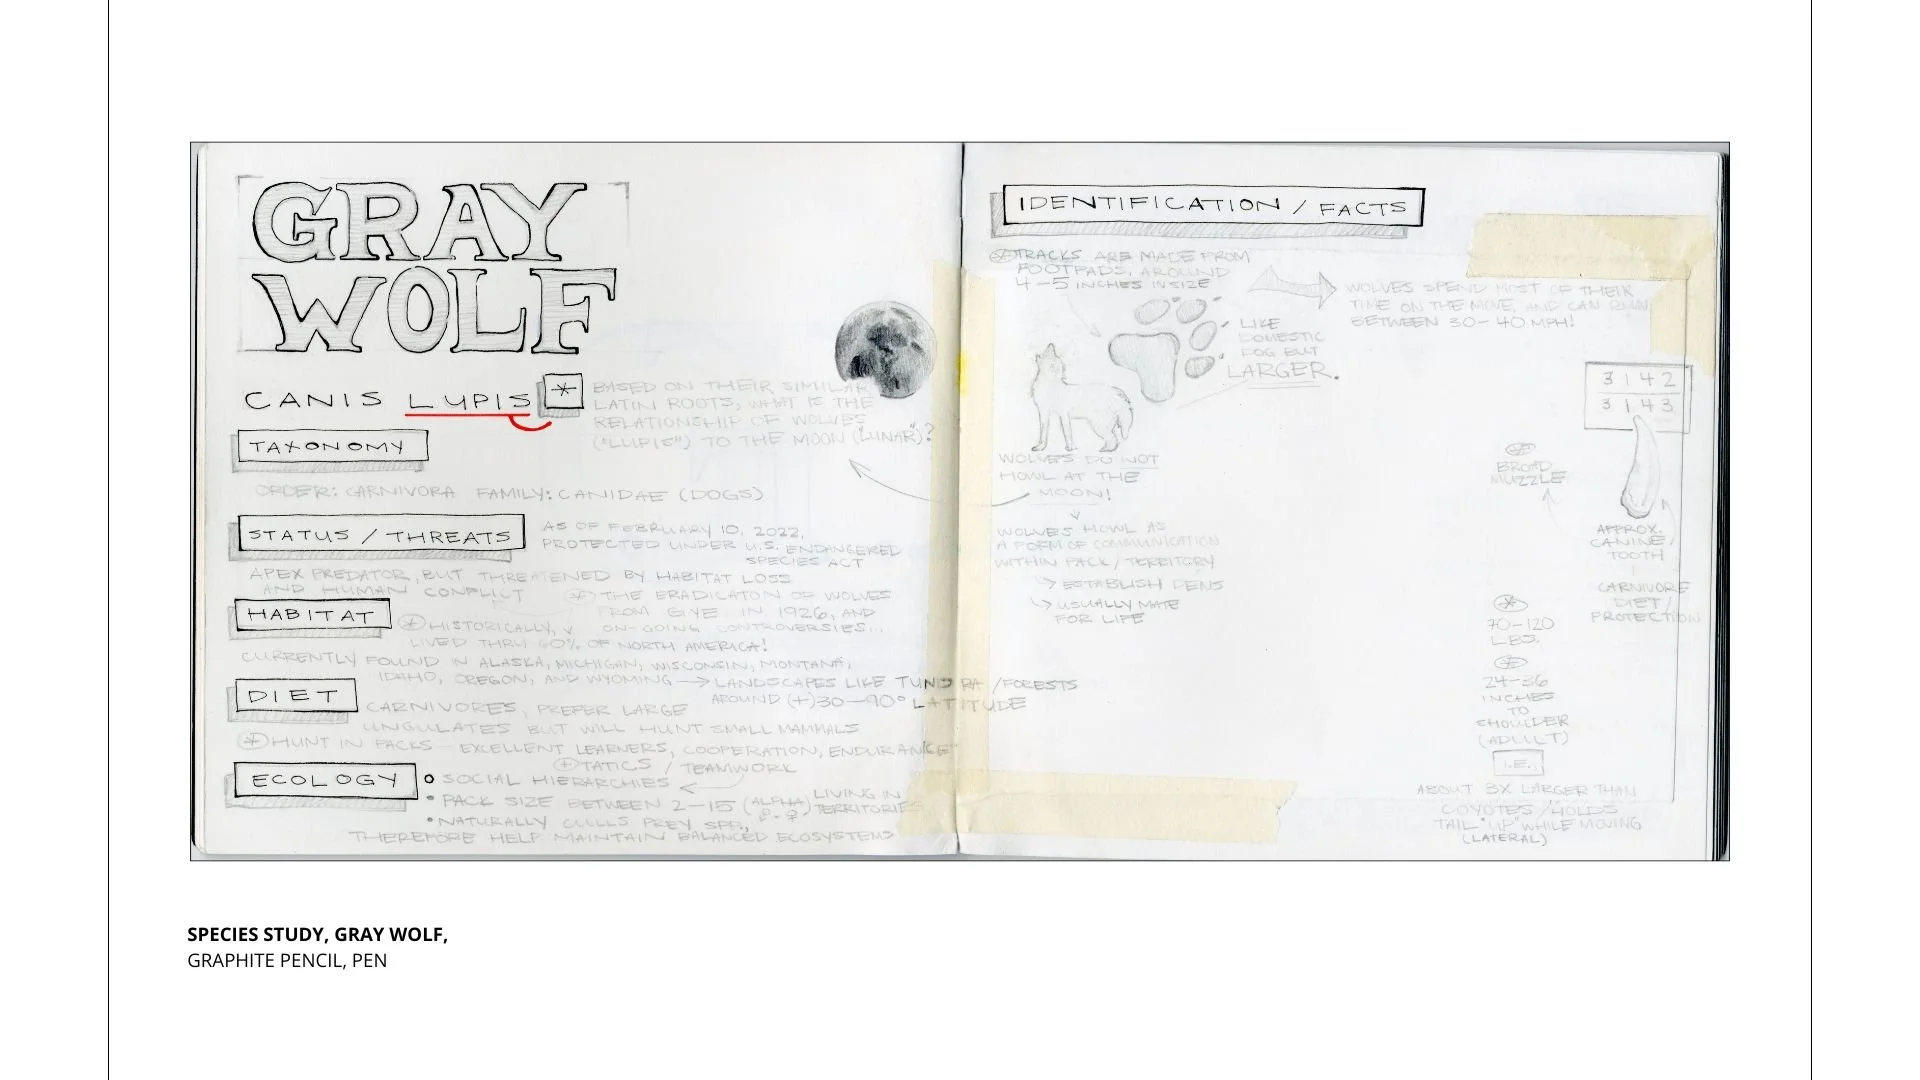 GRAY
WOLF
CANIS LUPIS *
BASED ON THEIR SIMILAR
LATIN ROOTS, WHAT IS THE
RELATIONSHIP OF WOLVES
("LUPIS") TO THE MOON ("LUNAR")?
TAXONOMY
ORDER: CARNIVORA FAMILY: CANIDAE (DOGS)
STATUS / THREATS
AS OF FEBRUARY 10, 2022,
PROTECTED UNDER U.S. ENDANGERED
SPECIES ACT
APEX PREDATOR, BUT THREATENED BY HABITAT LOSS
AND HUMAN CONFLICT
* THE ERADICATON OF WOLVES
FROM GYE IN 1926, AND
ON-GOING CONTROVERSIES...
HABITAT
* HISTORICALLY,
LIVED THRU 60% OF NORTH AMERICA!
CURRENTLY FOUND IN ALASKA, MICHIGAN, WISCONSIN, MONTANA,
IDAHO, OREGON, AND WYOMING → LANDSCAPES LIKE TUNDRA / FORESTS
AROUND (+) 30-90° LATITUDE
DIET
CARNIVORES, PREFER LARGE
UNGULATES BUT WILL HUNT SMALL MAMMALS
* HUNT IN PACKS - EXCELLENT LEARNERS, COOPERATION, ENDURANCE
+ TATICS / TEAMWORK
ECOLOGY
• SOCIAL HIERARCHIES
• PACK SIZE BETWEEN 2-15 (ALPHA ♂-♀) LIVING IN
TERRITORIES
• NATURALLY CULLS PREY SPP.,
THEREFORE HELP MAINTAIN BALANCED ECOSYSTEMS
IDENTIFICATION / FACTS
* TRACKS ARE MADE FROM
FOOTPADS, AROUND
4-5 INCHES IN SIZE
WOLVES SPEND MOST OF THEIR
TIME ON THE MOVE, AND CAN RUN
BETWEEN 30-40 MPH!
LIKE
DOMESTIC
DOG BUT
LARGER.
WOLVES DO NOT
HOWL AT THE
MOON!
WOLVES HOWL AS
A FORM OF COMMUNICATION
WITHIN PACK / TERRITORY
↳ ESTABLISH DENS
↳ USUALLY MATE
FOR LIFE
3 1 4 2
3 1 4 3
* BROAD
MUZZLE
APPROX.
CANINE
TOOTH
CARNIVORE
DIET /
PROTECTION
* 70-120
LBS.
* 24-36
INCHES
TO
SHOULDER
(ADULT)
I.E.
ABOUT 3X LARGER THAN
COYOTES / HOLDS
TAIL "UP" WHILE MOVING
(LATERAL)
SPECIES STUDY, GRAY WOLF,
GRAPHITE PENCIL, PEN